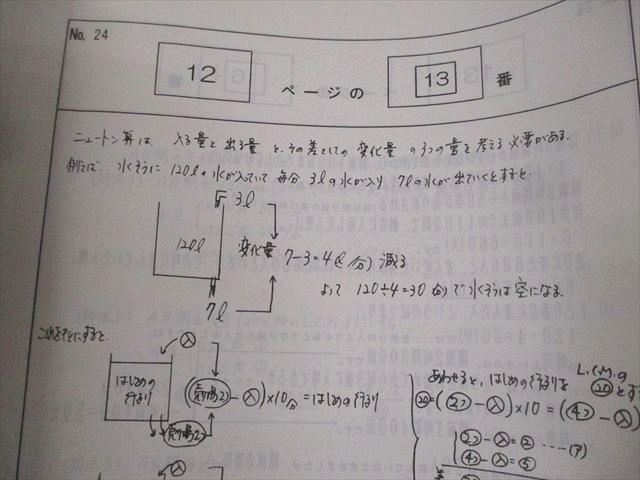 No. 24
12 ページの 13 番
ニュートン算は、入る量と出る量と、その差としての変化量の3つの量を考える必要がある。
例えば、水そうに120ℓの水が入っていて毎分3ℓの水が入り7ℓの水が出ていくとすると、
3ℓ
120ℓ
変化量
7-3=4(ℓ/分)減る
よって 120÷4=30(分)で水そうは空になる。
7ℓ
これをもとにすると、
入
はじめの行列
売り場2つ
(売り場2つ-入)×10分=はじめの行列
入
あわせると、はじめの行列を
L.C.M.の
⑳とす
⑳=(2つ-入)×10=(4つ-入)
2つ-入=②……(ア)
4つ-入=⑤